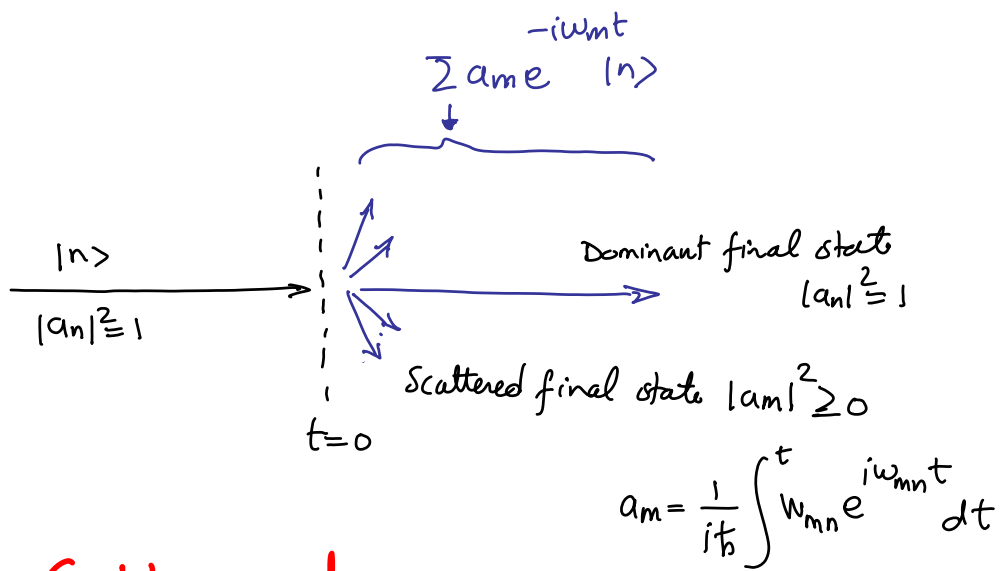 Σ aₘe^{-iωₘt} |n>
|n>
|aₙ|² = 1
Dominant final state
|aₙ|² ≃ 1
Scattered final state |aₘ|² ≥ 0
t=0
aₘ = 1/iħ ∫^t Wₘₙ e^{iωₘₙt} dt